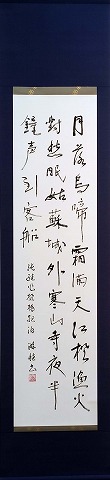 月落烏啼霜満天江楓漁火
對愁眠姑蘇城外寒山寺夜半
鐘声到客船